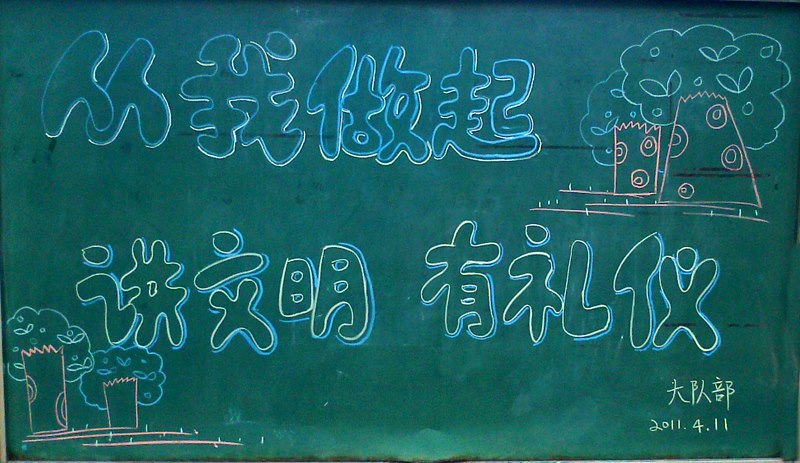 从我做起
讲文明 有礼仪
大队部
2011.4.11